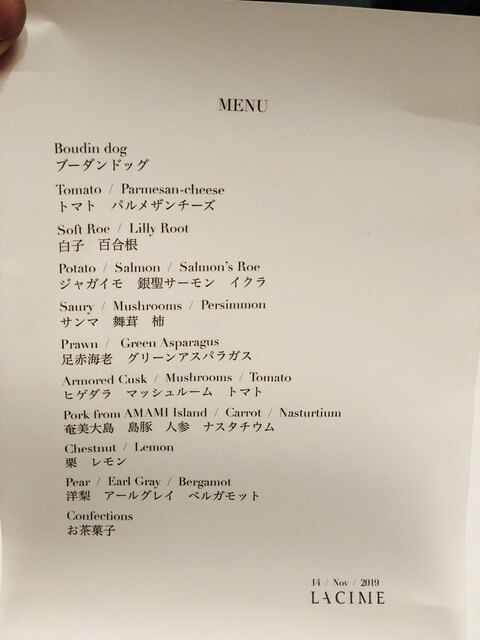 MENU
Boudin dog
ブーダンドッグ
Tomato / Parmesan-cheese
トマト　パルメザンチーズ
Soft Roe / Lilly Root
白子　百合根
Potato / Salmon / Salmon's Roe
ジャガイモ　銀聖サーモン　イクラ
Saury / Mushrooms / Persimmon
サンマ　舞茸　柿
Prawn / Green Asparagus
足赤海老　グリーンアスパラガス
Armored Cusk / Mushrooms / Tomato
ヒゲダラ　マッシュルーム　トマト
Pork from AMAMI Island / Carrot / Nasturtium
奄美大島　島豚　人参　ナスタチウム
Chestnut / Lemon
栗　レモン
Pear / Earl Gray / Bergamot
洋梨　アールグレイ　ベルガモット
Confections
お茶菓子
14 / Nov / 2019
LACIME